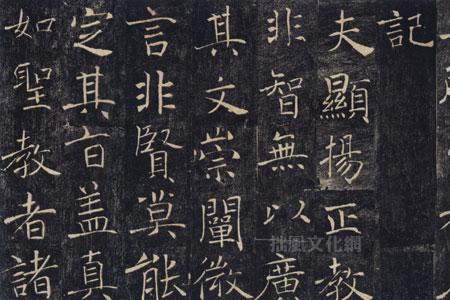 記
夫顯揚正教
非智無以廣
其文崇闡微
言非賢莫能
定其旨盖真
如聖教者諸
拙風文化網